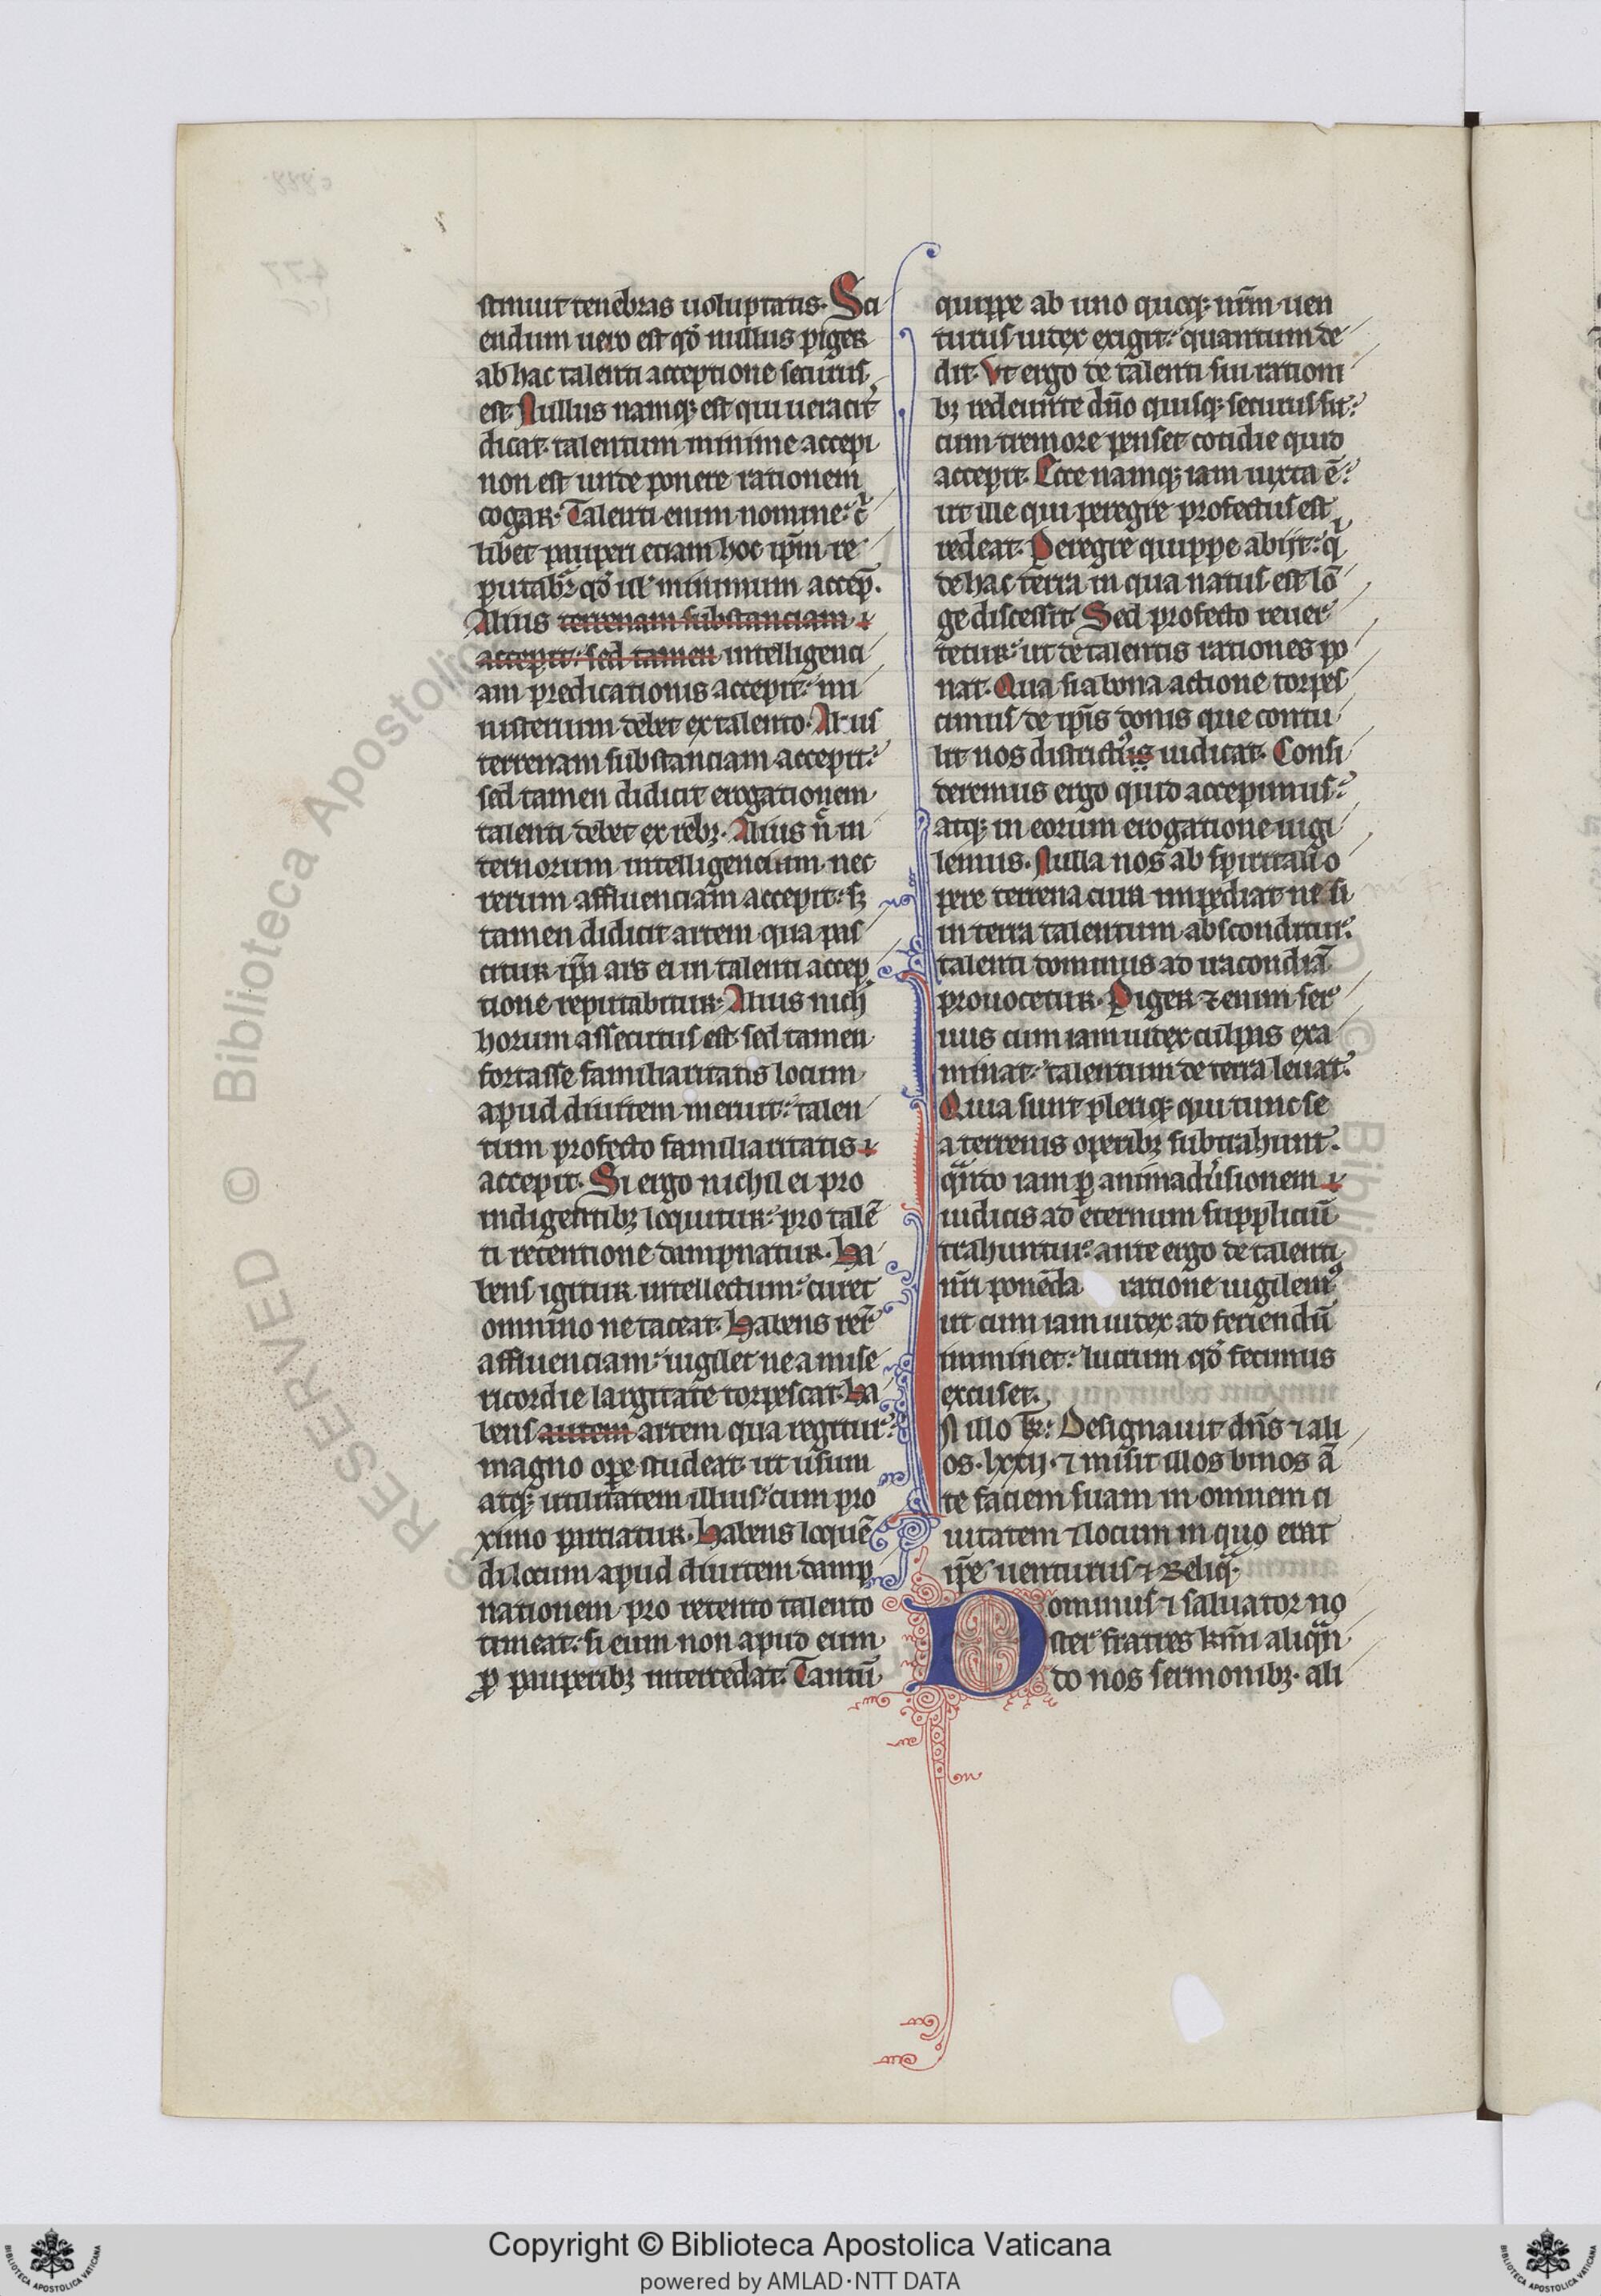 stinuit tenebras uoluptatis. Sci
endum uero est qd̓ nullus piger
ab hac talenti acceptione securus
est. Nullus namq; est qui ueracit̓
dicat. talentum minime accepi
non est unde ponere rationem
cogar. Talenti enim nomine: c̓
libet pauperi etiam hoc ip̄m re
putabr̄ qd̓ ul̓ minimum accep̄.
Alius terrenam substanciam
accepit: sed tamen intelligenci
am predicationis accepit: mi
nisterium debet ex talento. Alius
terrenam substanciam accepit:
sed tamen didicit erogationem
talenti debet ex rebꝫ. Alius n̄ in
ternorum intelligenciam. nec
rerum affluenciam accepit: sꝫ
tamen didicit artem qua pas
citur ip̄a ars ei in talenti accep
tione reputabitur. Alius nich̓
horum assecutus est. sed tamen
fortasse familiaritatis locum
apud diuitem meruit: talen
tum profecto familiaritatis
accepit. Si ergo nichil ei pro
indigentibꝫ loquitur: pro talē
ti retentione dampnatur. Ha
bens igitur intellectum: curet
omnino ne taceat. Habens rer̄
affluenciam: uigilet ne a mise
ricordie largitate torpescat. Ha
bens autem artem qua regitur:
magno opere studeat. ut usum
atq; utilitatem illius: cum pro
ximo partiatur. Habens loquē
di locum apud diuitem damp
nationem pro retento talento
timeat: si eum non apud eum
ꝓ pauperibꝫ intercedat. Tantū
quippe ab uno quoq; nr̄m uen
turus iudex exigit: quantum de
dit. Vt ergo de talenti sui rationi
bꝫ redeunte dn̄o quisq; securus sit:
cum tremore penset cotidie quid
accepit. Ecce namq; iam iuxta ē:
ut ille qui peregre profectus est
redeat. Peregre quippe abijt: qͥ
de hac terra in qua natus est lō
ge discessit. Sed profecto reuer
tetur: ut de talentis rationes po
nat. Quia si a bona actione torpes
cimus de ip̄is donis que contu
lit nos districtꝰis iudicat. Consi
deremus ergo quid accepimus:
atq; in eorum erogatione uigi
lemus. Nulla nos ab spiritali o
pere terrena cura impediat ne si
in terra talentum absconditur:
talenti dominus ad iracondiā
prouocetur. Piger etenim ser
uus cum iam iudex culpas exa
minat: talentum de terra leuat.
Quia sunt pleriq; qui tunc se
a terrenis operibꝫ subtrahunt.
quādo iam ꝑ animaduersionem
iudicis ad eternum suppliciū
trahuntur: ante ergo de talenti
nr̄i ponēda ratione uigilemꝰ
ut cum iam iudex ad feriendū
imminet: lucrum qd̓ fecimus
excuset.
IN illo tꝑr: Designauit dn̄s ⁊ ali
os. lxxij. ⁊ misit illos binos ā
te faciem suam in omnem ci
uitatem ⁊ locum in quo erat
ip̄e uenturus ⁊ Reliqͣ.
Dominus ⁊ saluator no
ster fratres km̄i aliqn̄
do nos sermonibꝫ. ali
Copyright © Biblioteca Apostolica Vaticana
powered by AMLAD·NTT DATA